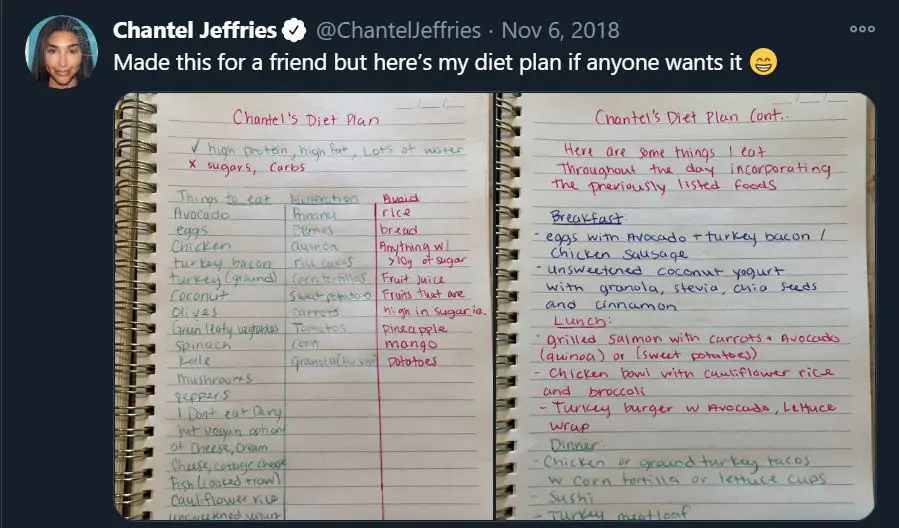 Chantel Jeffries @ChantelJeffries · Nov 6, 2018
Made this for a friend but here's my diet plan if anyone wants it 😁
Chantel's Diet Plan
✓ high protein, high fat, Lots of water
x sugars, carbs
Things to eat Moderation Avoid
Avocado Banana rice
eggs bread
Chicken quinoa Anything w/
turkey bacon rice cakes >10g of sugar
turkey (ground) Corn tortillas Fruit juice
Coconut sweet potatoes Fruits that are
Olives carrots high in sugar ie.
Green leafy vegetables Tomatos pineapple
spinach corn mango
kale granola potatoes
mushrooms
peppers
I Dont eat Dairy
but vegan option
of Cheese, Cream
Cheese, cottage cheese
Fish (cooked + raw)
Cauliflower rice
unsweetened yogurt
Chantel's Diet Plan Cont..
Here are some things I eat
Throughout the day incorporating
The previously listed foods
Breakfast:
- eggs with Avocado + turkey bacon /
chicken sausage
- unsweetened coconut yogurt
with granola, stevia, chia seeds
and cinnamon
Lunch:
- grilled salmon with carrots + Avocado
(quinoa) or (sweet potatoes)
- Chicken bowl with cauliflower rice
and broccoli
- Turkey burger w Avocado, Lettuce
wrap
Dinner:
- Chicken or ground turkey tacos
w corn tortilla or lettuce cups
- Sushi
- Turkey meatloaf